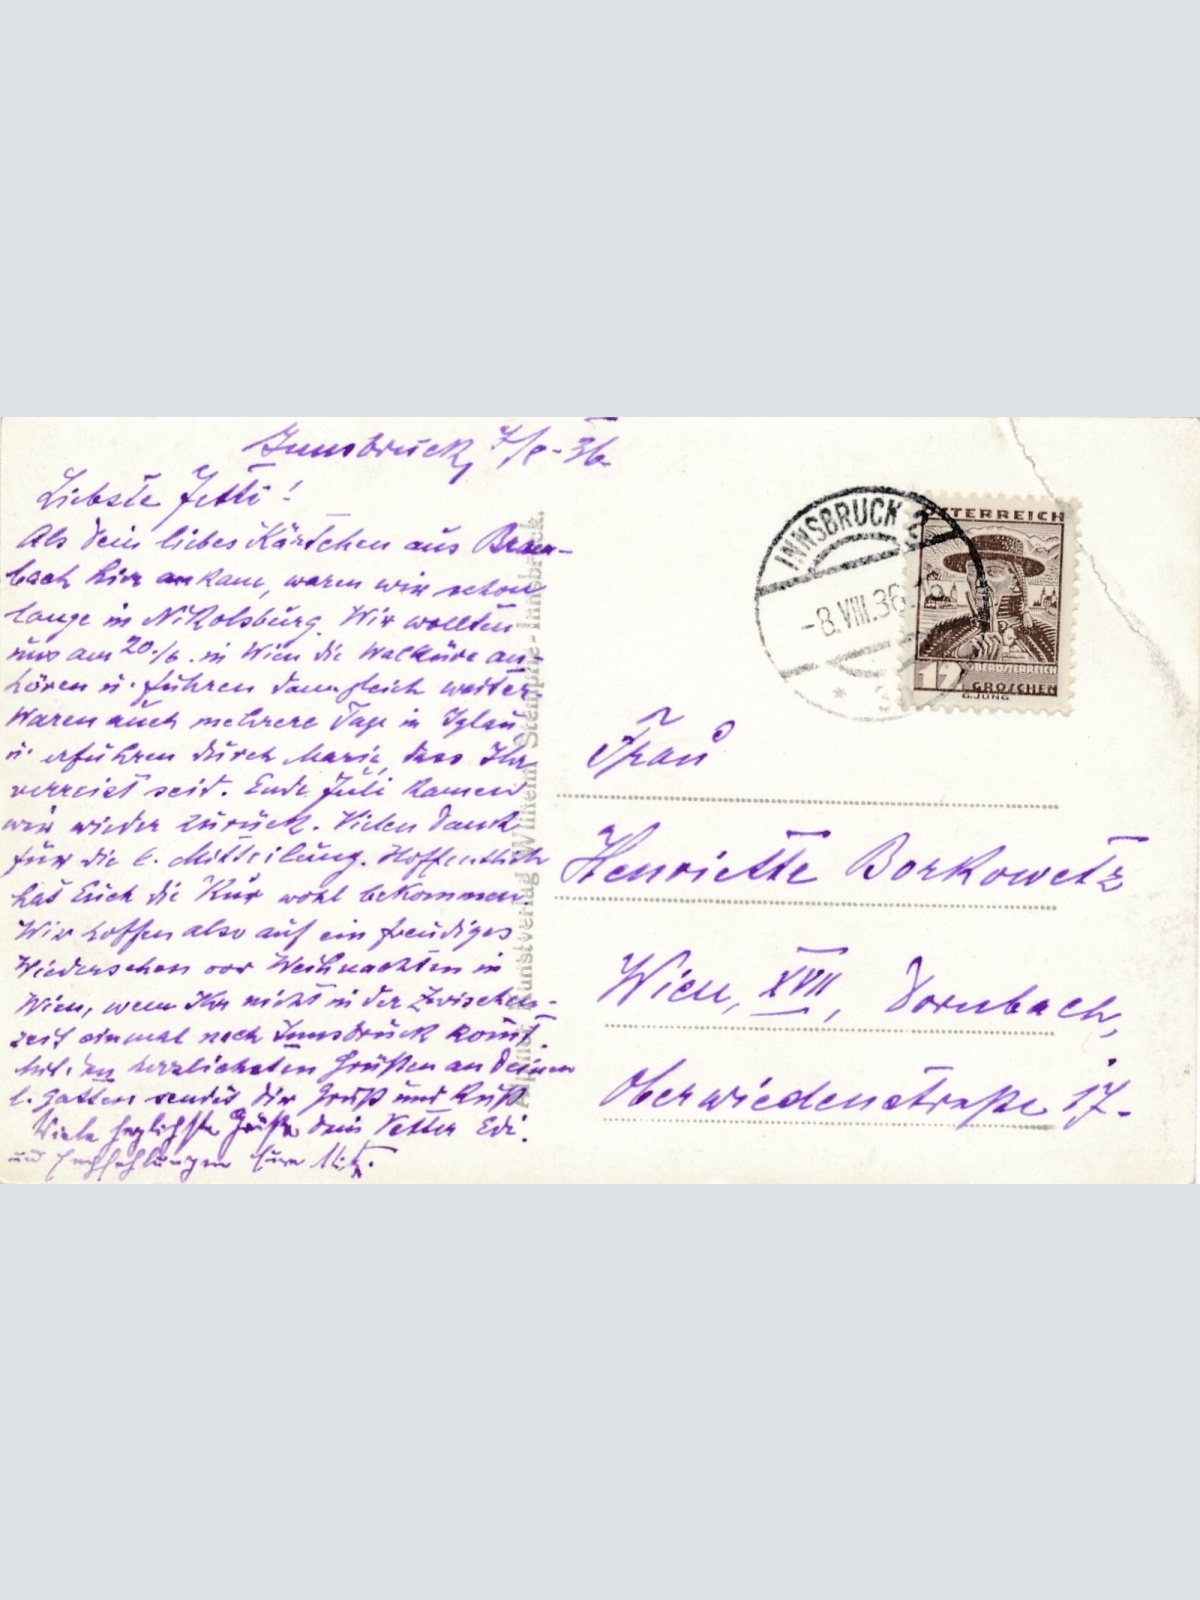 Innsbruck, 7/8-36
Liebste Jetti!
Als dein liebes Kärtchen aus Bram-
bach hier ankam, waren wir schon
lange in Nikolsburg. Wir wollten
uns am 20./6. in Wien die Walküre an-
hören u. fuhren dann gleich weiter
Waren auch mehrere Tage in Iglau
u. erfuhren durch Maria, dass Ihr
verreist seid. Ende Juli kamen
wir wieder zurück. Vielen Dank
für die l. Mitteilung. Hoffentlich
hat Euch die Kur wohl bekommen
Wir hoffen also auf ein freudiges
Wiedersehen vor Weihnachten in
Wien, wenn Ihr nicht in der Zwischen-
zeit einmal nach Innsbruck komt.
Mit den herzlichsten Grüßen an Deinen
l. Gatten sendet dir Gruß und Kuß
Viele herzlichste Grüße dein Vetter Edi.
und Empfehlungen Eure
Alpiner Kunstverlag Wilhelm Stempfle-Innsbruck.
INNSBRUCK 2
-8.VIII.36.16
* 3
ÖSTERREICH
OBERÖSTERREICH
12 GROSCHEN
G.JUNG
Frau
Henriette Borkowetz
Wien, XVII, Dornbach,
Oberwiedenstraße 17-